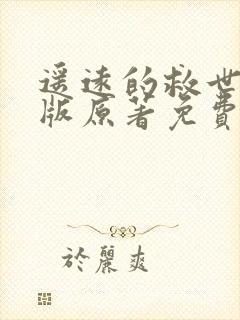 遥远的救世
版原著免费
於麗爽